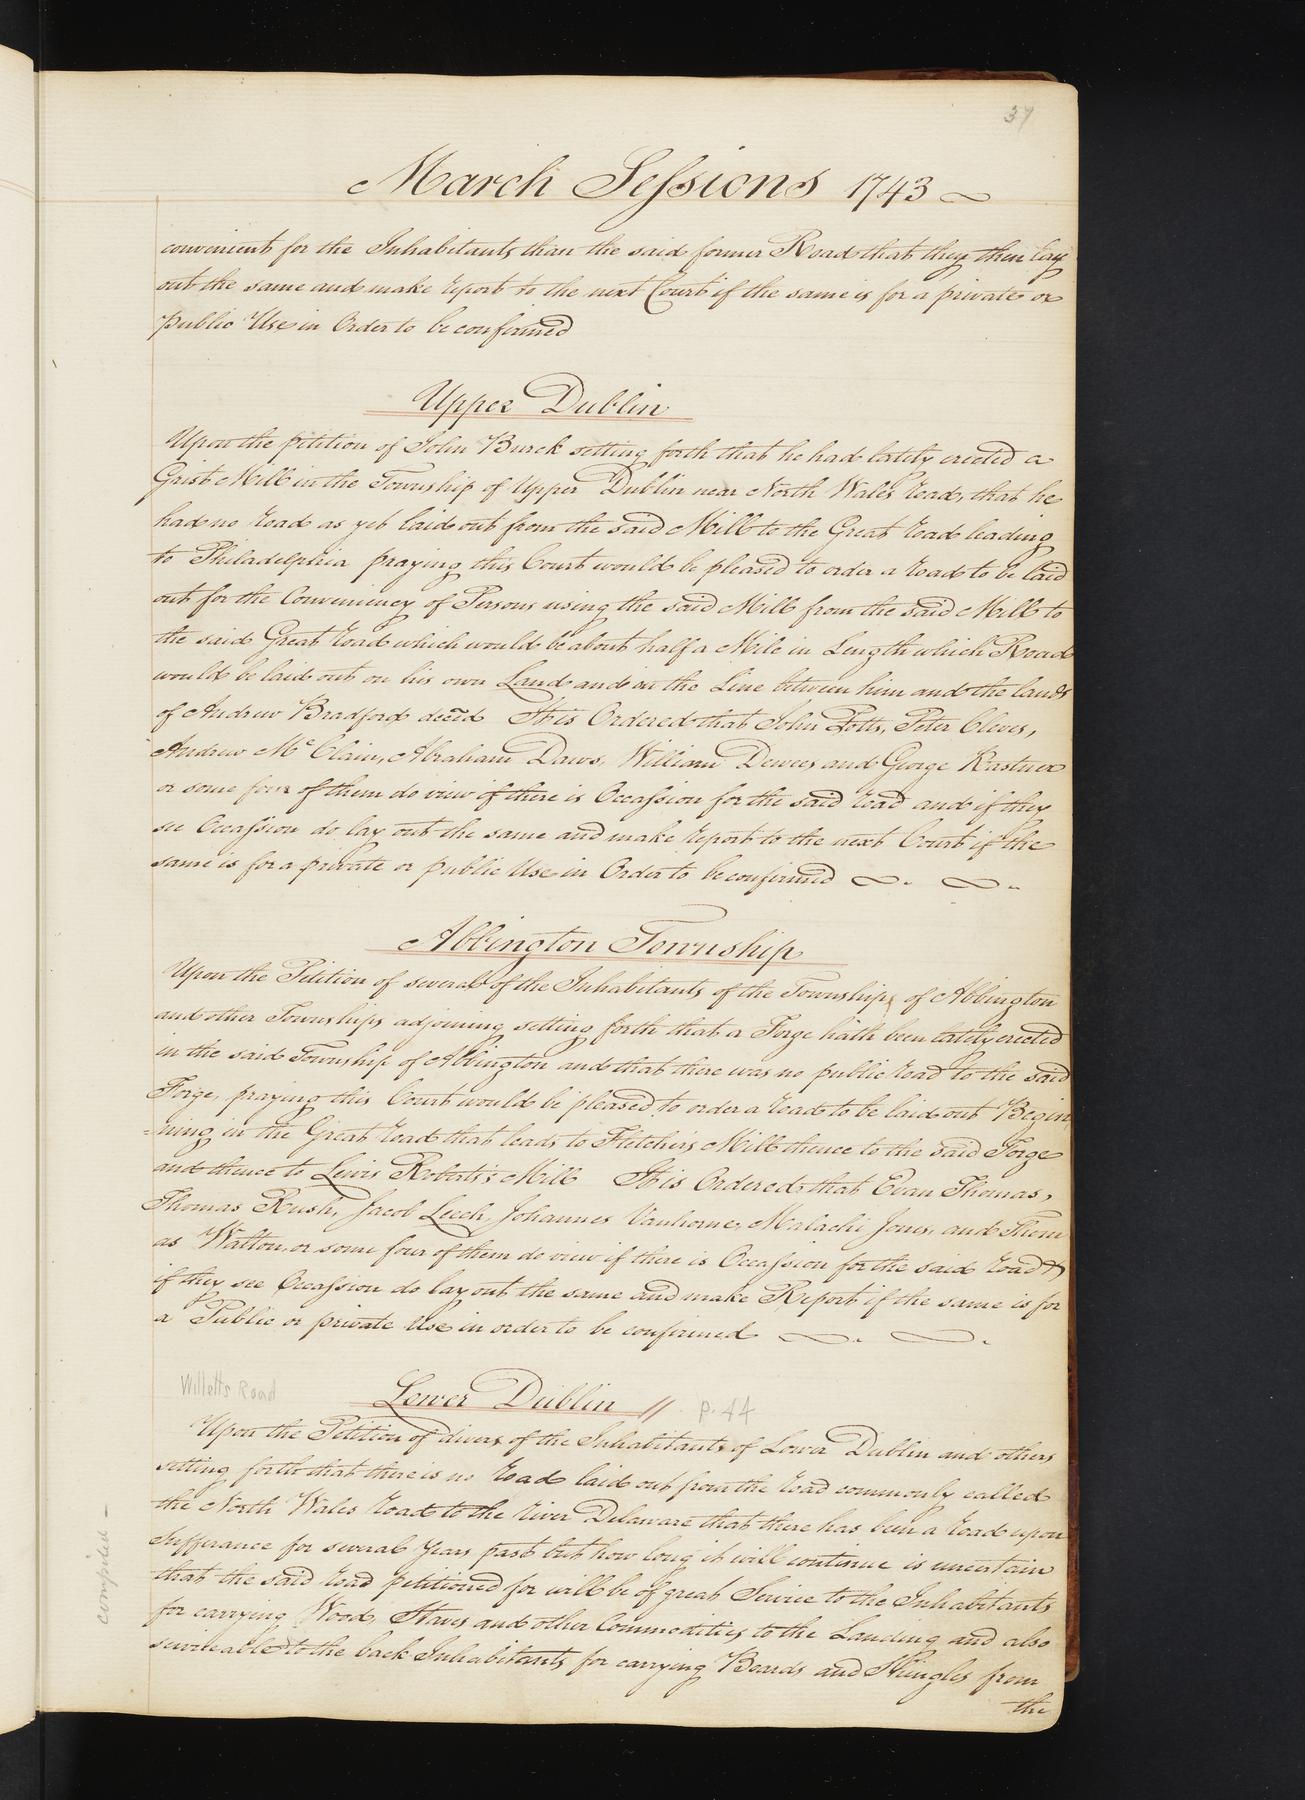 37
March Sessions 1743
convenient for the Inhabitants than the said former Road that they then lay
out the same and make report to the next Court if the same is for a private or
public Use in Order to be confirmed
Upper Dublin
Upon the petition of John Burck setting forth that he had lately erected a
Grist Mill in the Township of Upper Dublin near North Wales road, that he
had no road as yet laid out from the said Mill to the Great road leading
to Philadelphia praying this Court would be pleased to order a road to be laid
out for the Conveniency of Persons using the said Mill from the said Mill to
the said Great road which would be about half a Mile in Length which Road
would be laid out on his own Land and on the Line between him and the lands
of Andrew Bradford deced It is Ordered that John Potts, Peter Cleves,
Andrew Mc Clain, Abraham Daws, William Dewees and George Kastner
or some four of them do view if there is Occassion for the said road and if they
see Occassion do lay out the same and make report to the next Court if the
same is for a private or public Use in Order to be confirmed
Abbington Township
Upon the Petition of several of the Inhabitants of the Township of Abbington
and other Townships adjoining setting forth that a Forge hath been lately erected
in the said Township of Abbington and that there was no public road to the said
Forge, praying this Court would be pleased to order a road to be laid out Begin
=ning in the Great road that leads to Fletcher's Mill thence to the said Forge
and thence to Lewis Roberts's Mill It is Ordered that Evan Thomas,
Thomas Rush, Jacob Leech, Johannes Vanhorne, Malachi Jones, and Thom
as Walton, or some four of them do view if there is Occassion for the said road &
if they see Occassion do lay out the same and make Report if the same is for
a Public or private Use in order to be confirmed
Willetts Road
Lower Dublin // p. 44
Upon the Petition of divers of the Inhabitants of Lower Dublin and others
setting forth that there is no road laid out from the road commonly called
the North Wales road to the river Delaware that there has been a road upon
Sufferance for several Years past but how long it will continue is uncertain
that the said road petitioned for will be of great Service to the Inhabitants
for carrying Wood, Staves and other Commodities to the Landing and also
serviceable to the back Inhabitants for carrying Boards and Shingles from
the
compiled -